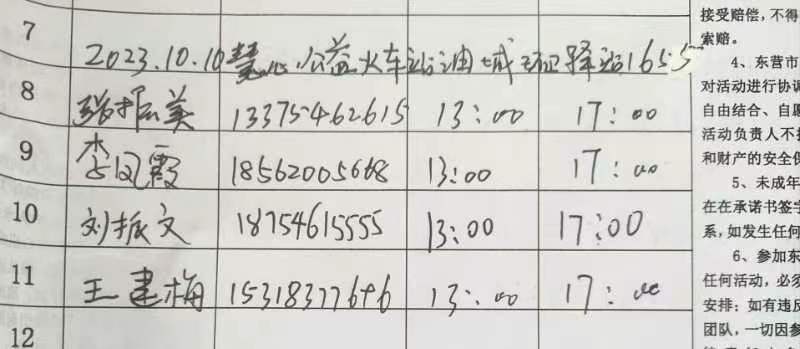 7
2023.10.10慧心公益火车站油城环卫驿站1655
8 张振美 13375462615 13:00 17:00
9 李凤霞 18562005668 13:00 17:00
10 刘振文 18754615555 13:00 17:00
11 王建梅 15318377696 13:00 17:00
12
接受赔偿，不得
索赔。
4、东营市
对活动进行协调
自由结合、自愿
活动负责人不
和财产的安全
5、未成年
在在承诺书签字
系，如发生任何
6、参加东
任何活动，必须
安排；如有违反
团队，一切因参